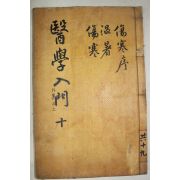 傷寒序
溫暑
傷寒
醫學入門 十
共十九